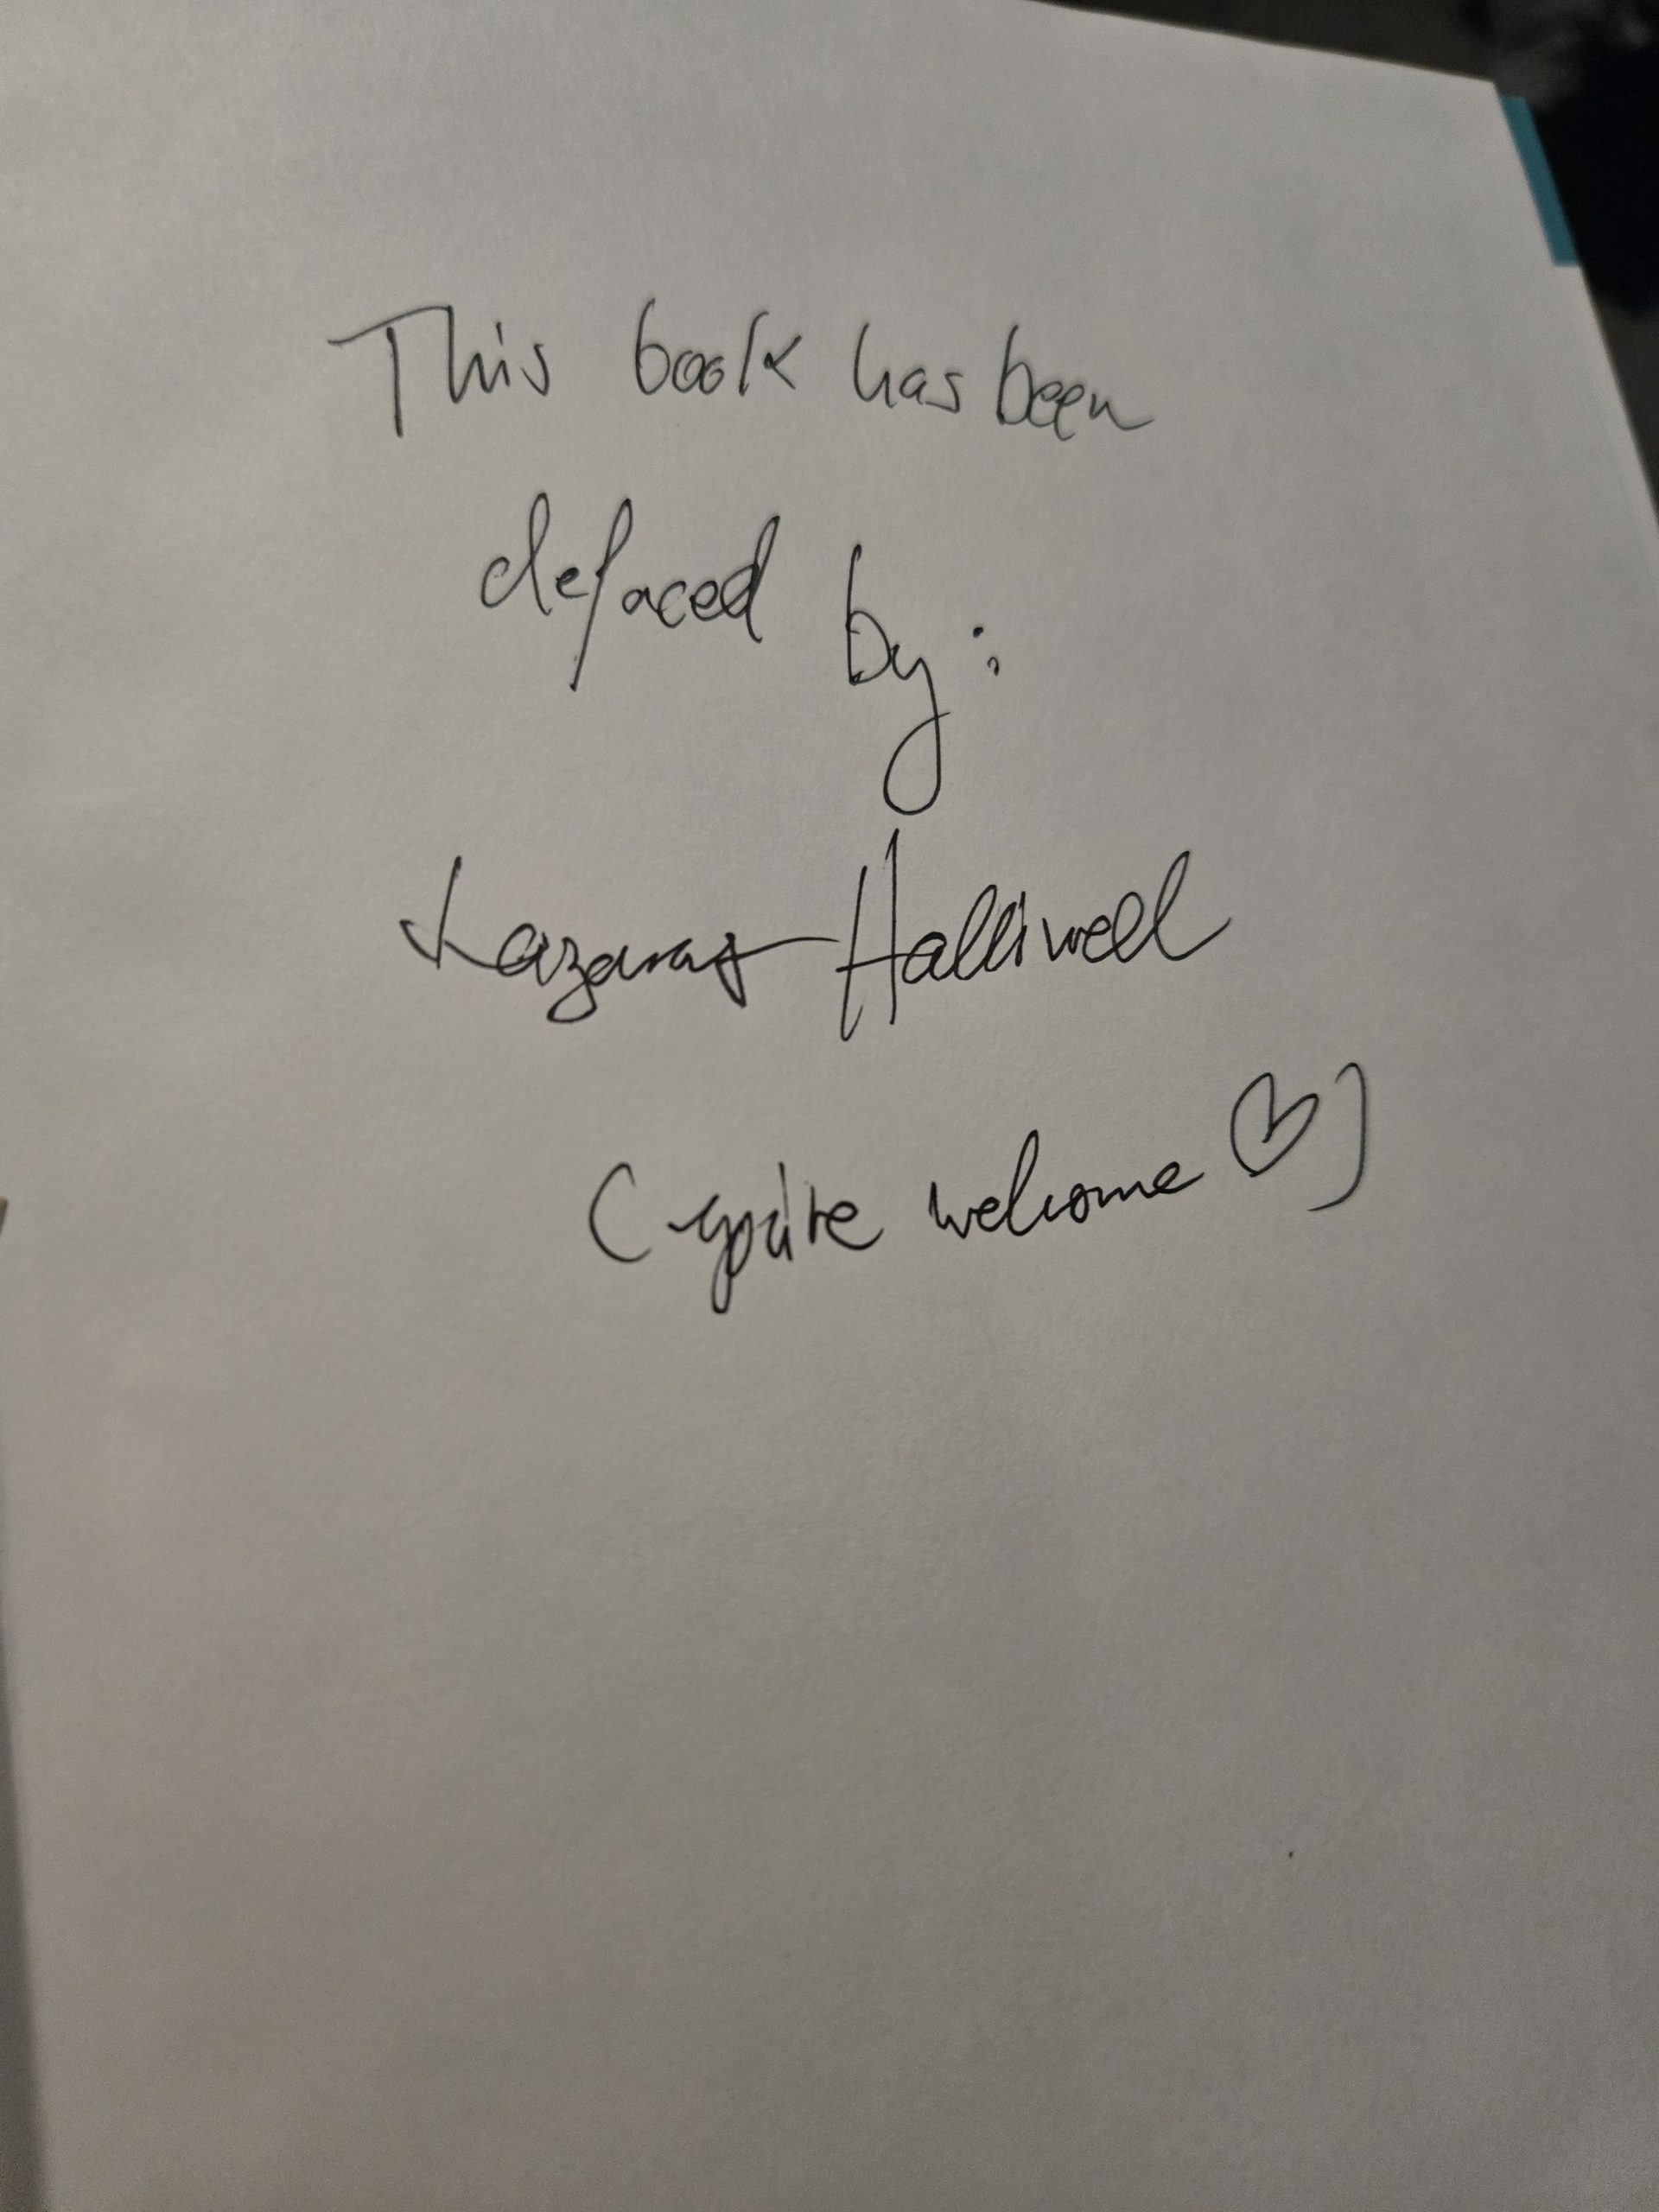 This book has been
defaced by:
Lazarus Halliwell
(you're welcome ♡)